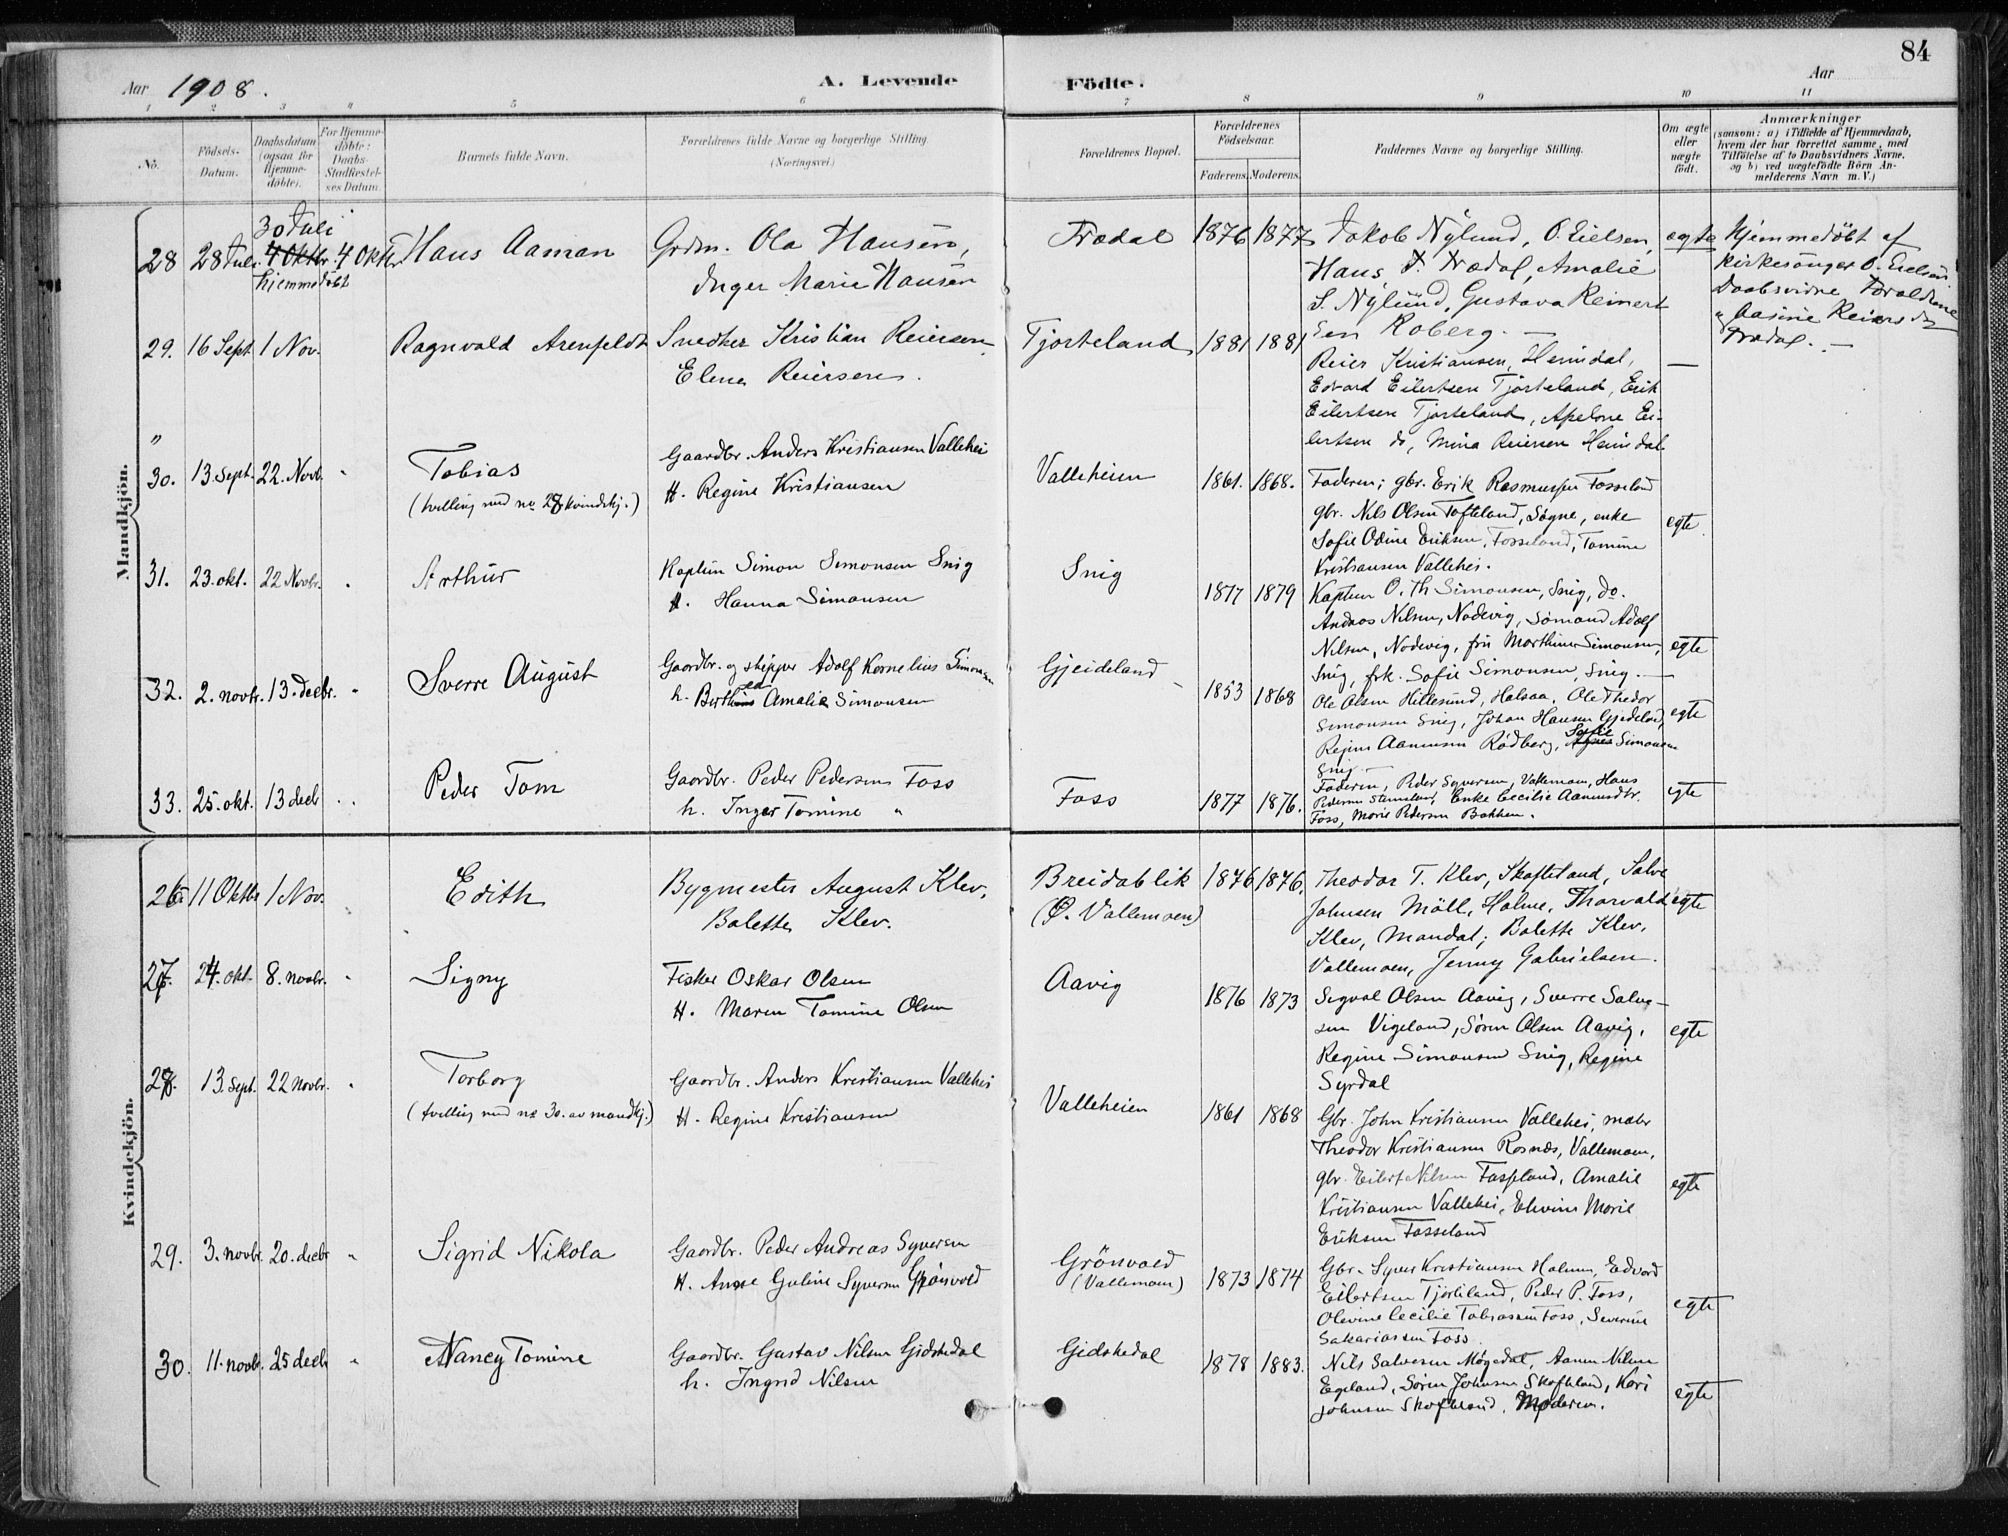 84
Aar 1908. A. Levende Fødte. Aar
1 2 3 4 5 6 7 8 9 10 11
No. Födsels-Datum. Daabsdatum (ogsaa for Hjemmedøbte). For Hjemmedøbte: Daabs-Stadfæstelses Datum. Barnets fulde Navn. Forældrenes fulde Navne og borgerlige Stilling (Næringsvei.) Forældrenes Bopæl. Forældrenes Fødselsaar. Faderens. Moderens. Faddernes Navne og borgerlige Stilling. Om ægte eller uægte født. Anmærkninger (saasom: a) i Tilfælde af Hjemmedaab, hvem der har forrettet samme, med Tilføielse af to Daabsvidners Navne, og b) ved uægtefødte Börn Anmelderens Navn m. V.)
Mandkjön.
28 28 Juli 30 Juli 4 Oktbr. hjemmedöbt 4 Oktbr. Hans Aaman
Grdm. Ola Hansen,
Inger Marie Hansen
Trædal 1876 1877
Jakob Nylund, O. Eielsen,
Hans T. Trædal, Amalie
S. Nylund, Gustava Reinert
sen Roberg. —
egte
Hjemmedöbt af
kirkesanger O. Eielsen
Daabsvidne Forældrene
Aasine Reiersdtr
Trædal. —
29. 16 Sept. 1 Nov. Ragnvald Arenfeldt
Snedker Kristian Reiersen
Elena Reiersen.
Tjorteland 1881 1881
Reier Kristiansen, Heimdal,
Edvard Eilertsen Tjorteland, Erik
Eilertsen Tjorteland, Apelone Ei-
lertsen do, Mina Reiersen Heimdal
—
"
30. 13. Sept. 22. Novb. " Tobias
(tvilling med no 28 kvindekj.)
Gaardbr. Anders Kristiansen Vallehei
H. Regine Kristiansen
Valleheien 1861. 1868.
Faderen; gbr. Erik Rasmussen Fosseland
gbr. Nils Olsen Tofteland, Søgne, enke
Sofie Odine Eriksen, Fosseland, Tomine
Kristiansen Vallehei.
egte
31. 23. okt. 22 Novbr. " Arthur
Kaptein Simon Simonsen Snig
h. Hanna Simonsen
Snig 1877 1879
Kaptein O. Th Simonsen, Snig, do.
Andreas Nilsen, Nodevig, Sømand Adolf
Nilsen, Nodevig, fru Marthine Simonsen,
Snig, frk. Sofie Simonsen, Snig. —
egte
32. 2. novbr. 13. decbr. " Sverre August
Gaardbr. og skipper Adolf Kornelius Simonsen
h. Amalie Simonsen
Gjeideland 1853 1868
Ole Olsen Hillesund, Halsaa, Ole Thedor
Simonsen Snig, Johan Hansen Gjeideland,
Regine Aanensen Rødberg, Sofie Simonsen
Snig —
egte
33. 25. okt. 13 decb " Peder Tom
Gaardbr. Peder Pedersen Foss
h. Inger Tomine "
Foss 1877 1876.
Faderen, Peder Syversen, Vallemoen, Hans
Pedersen, Enke Cecilie Aanundtr.
Foss, Marie Pedersen Bakken.
egte
Kvindekjön.
26. 11 Oktbr 1 Nov. " Edith
Bygmester August Klev,
Bolette Klev.
Breidablik
(Ø. Vallemoen)
1876 1876.
Theodor T. Klev, Skofteland, Salve
Johnsen Möll, Holme, Thorvald
Klev, Mandal; Bolette Klev,
Vallemoen, Jenny Gabrielsen.
egte
27. 24. okt. 8. novbr. " Signy
Fisker Oskar Olsen
H. Maren Tomine Olsen
Aavig 1876 1873
Sigval Olsen Aavig, Sverre Salve-
sen Vigeland, Søren Olsen Aavig,
Regine Simonsen Snig, Regine
Syrdal
egte
28. 13. Sept. 22 novbr. " Torborg
(tvilling med no 30. av mandkj.)
Gaardbr. Anders Kristiansen Vallehei
H. Regine Kristiansen
Valleheien 1861 1868
Gbr. John Kristiansen Vallehei, maler
Theodor Kristiansen Rosnæs, Vallemoen,
gbr. Eilert Nilsen Fosseland, Amalie
Kristiansen Vallehei, Elevine Marie
Eriksen Fosseland
egte
29. 3. novbr. 20. decbr " Sigrid Nikola
Gaardbr. Peder Andreas Syversen
H. Anne Guline Syversen Grønvold
Grönvold
(Vallemoen)
1873 1874
Gbr. Syver Kristiansen Holmen, Edvard
Eilertsen Tjorteland, Peder P. Foss,
Olevine Cecilie Tobiassen Foss, Severine
Sakariassen Foss
egte
30. 11. novbr. 25 decb " Nancy Tomine
Gaardbr. Gustav Nilsen Gidskedal
h. Ingrid Nilsen
Gidskedal 1878 1883.
Nils Salvesen Møgedal, Aanen Nilsen
Egeland, Søren Johnsen Skofteland, Kari
Johnsen Skofteland, Moderen.
egte